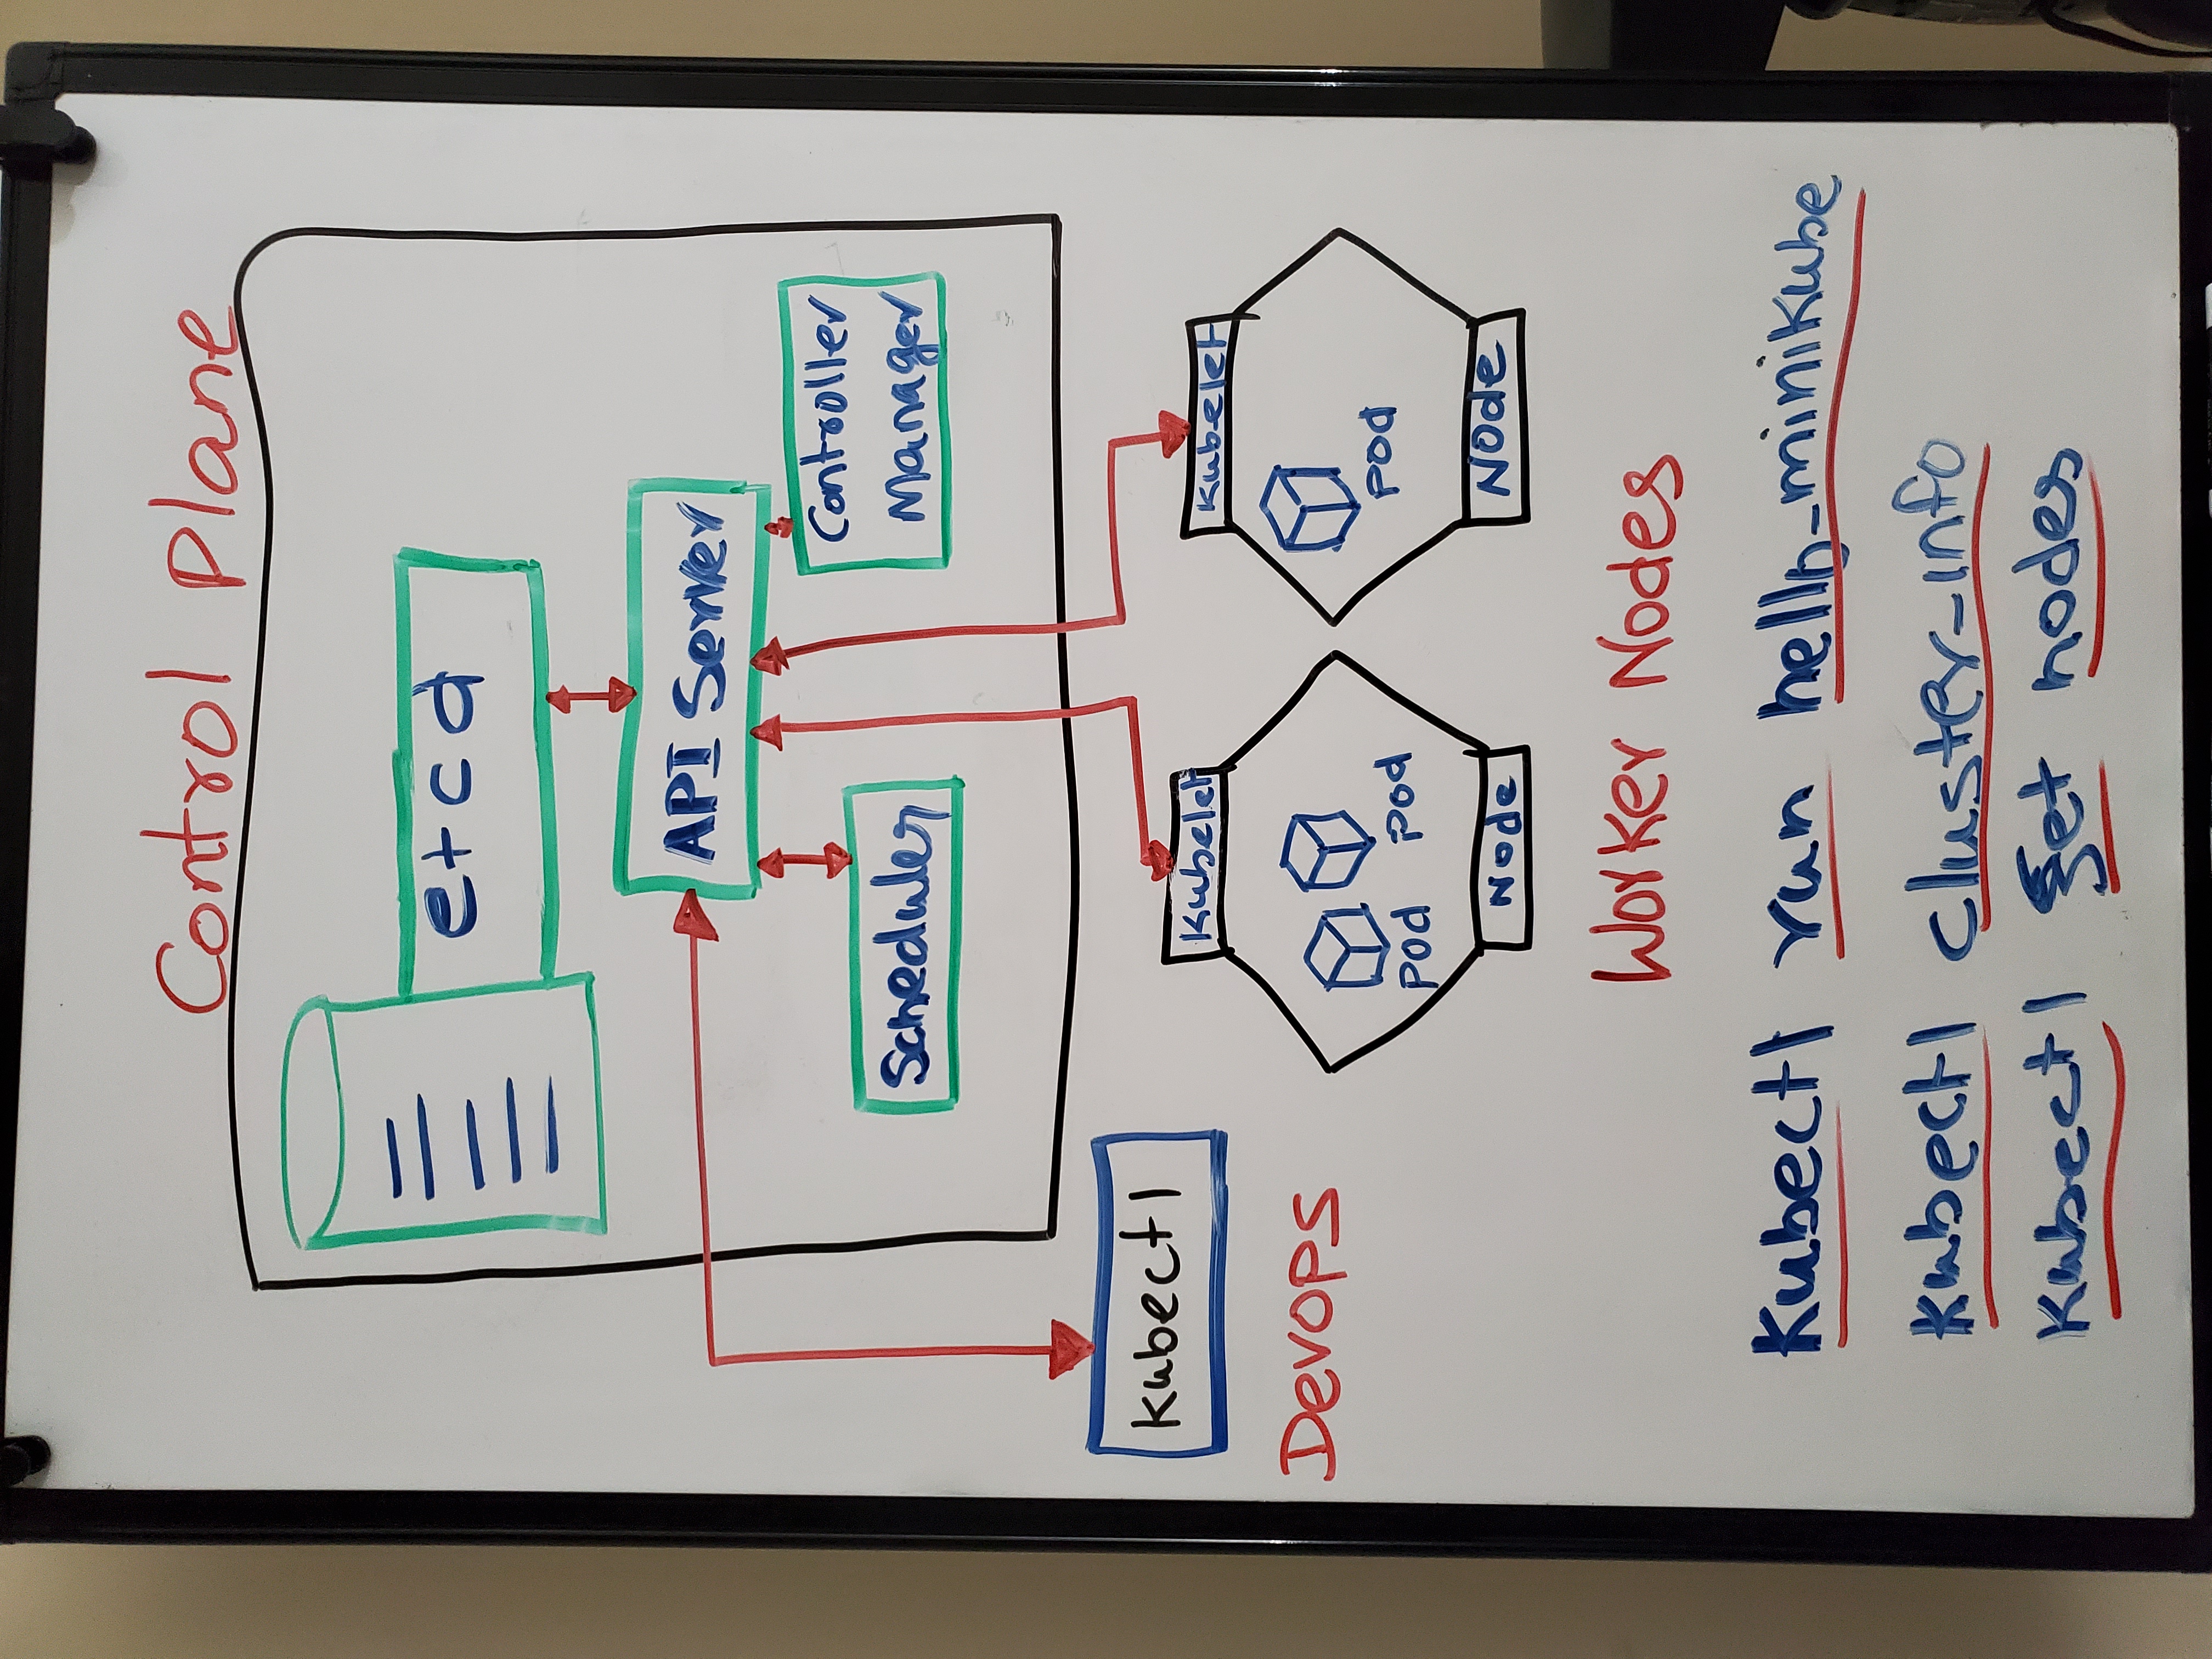 Control Plane
etcd
API Server
Scheduler
Controller
Manager
Kubectl
Devops
Kubelet
Kubelet
Pod
Pod
Pod
Node
Node
Worker Nodes
Kubectl run hello_minikube
Kubectl cluster_info
Kubectl get nodes